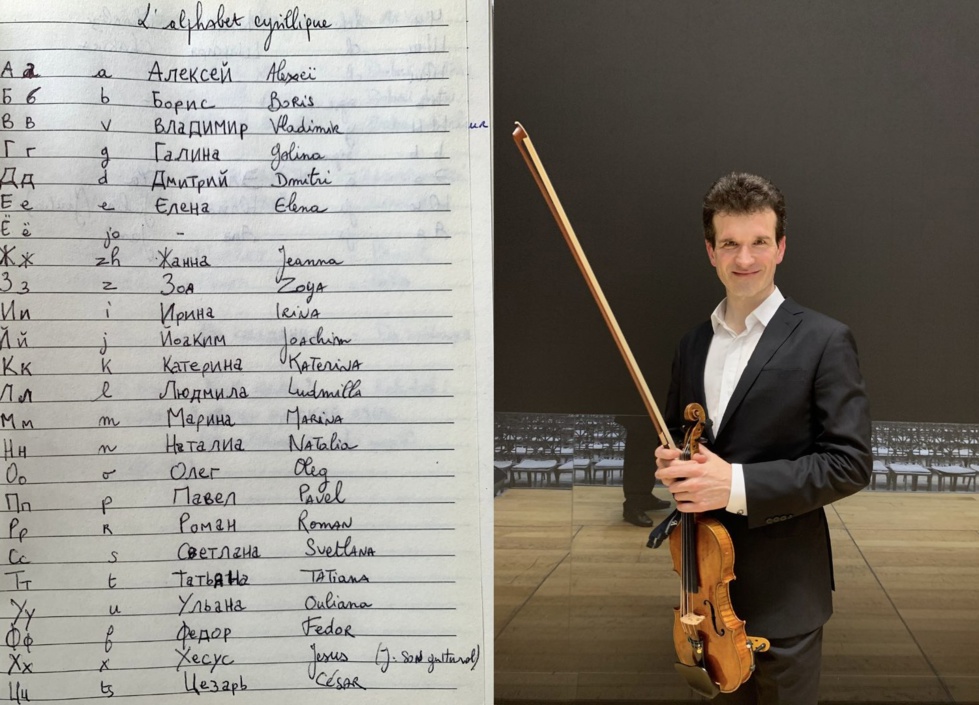 L'alphabet cyrillique
А а a Алексей Alexeï
Б б b Борис Boris
В в v Владимир Vladimir
Г г g Галина Galina
Д д d Дмитрий Dmitri
Е е e Елена Elena
Ё ё jo -
Ж ж zh Жанна Jeanna
З з z Зоя Zoya
И и i Ирина Irina
Й й j Йоаким Joachim
К к k Катерина Katerina
Л л l Людмила Ludmilla
М м m Марина Marina
Н н n Наталиа Natalia
О о o Олег Oleg
П п p Павел Pavel
Р р r Роман Roman
С с s Светлана Svetlana
Т т t Татьяна Tatiana
У у u Ульана Ouliana
Ф ф f Федор Fedor
Х х x Хесус Jesus (J. son guttural)
Ц ц ts Цезарь César